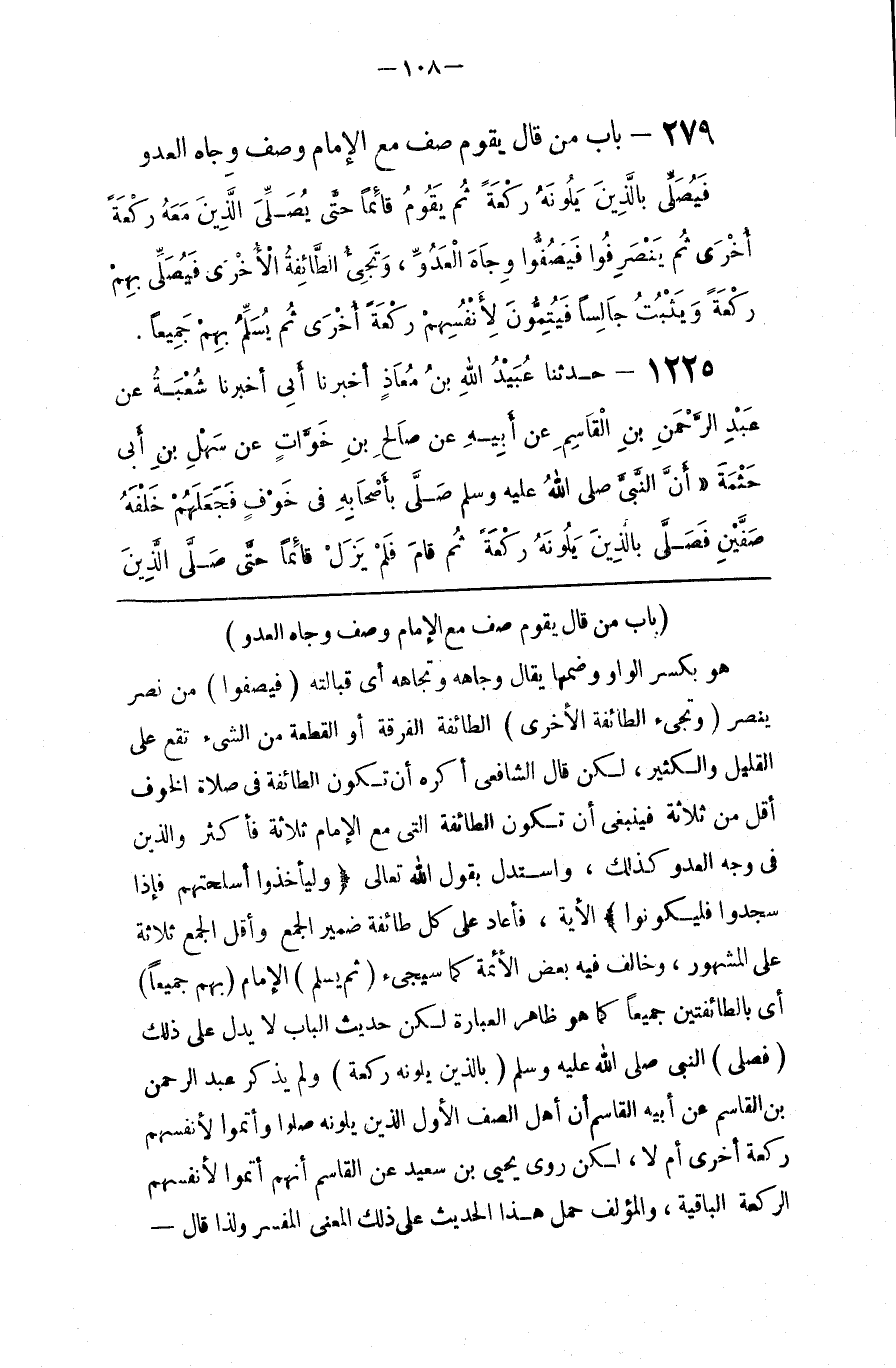 — ١٠٨ —
٢٧٩ — باب من قال يقوم صف مع الإمام وصف وِجاه العدو
فَيُصَلِّى بالَّذِينَ يَلُونَهُ رَكْعَةً ثم يَقُومُ قائماً حتَّى يُصَلِّىَ الَّذِينَ مَعَهُ رَكْعَةً
أُخْرَى ثُم يَنْصَرِفُوا فَيَصُفُّوا وِجاَهَ الْعَدُوِّ ، وَتَجِىءُ الطَّائِفةُ الْأُخْرَى فَيُصَلِّى بِهِمْ
رَكْعَةً وَيَثْبُتُ جالِساً فَيُتِمُّونَ لِأَنْفُسِهِمْ رَكْعَةً أُخْرَى ثُم يُسَلِّمُ بِهِمْ جَمِيعاً .
١٢٢٥ — حدثنا عُبَيْدُ اللهِ بنُ مُعَاذٍ أخبرنا أَبى أخبرنا شُعْبَةُ عن
عَبْدِ الرَّحْمَنِ بنِ الْقَاسِمِ عن أَبِيهِ عن صَالحِ بنِ خَوَّاتٍ عن سَهْلِ بنِ أَبى
حَثْمَةَ « أَنَّ النَّبىَّ صلى اللهُ عليه وسلم صَلَّى بأَصْحَابِهِ فى خَوْفٍ فَجَعَلَهُمْ خَلْفَهُ
صَفَّيْنِ فَصَلَّى بالَّذِينَ يَلُونَهُ رَكْعَةً ثُم قامَ فَلَمْ يَزَلْ قائماً حتَّى صَلَّى الَّذِينَ
( باب من قال يقوم صف مع الإمام وصف وجاه العدو )
هو بكسر الواو وضمها يقال وجاهه وتجاهه أى قبالته ( فيصفوا ) من نصر
ينصر ( وتجىء الطائفة الأخرى ) الطائفة الفرقة أو القطعة من الشىء تقع على
القليل والكثير ، لكن قال الشافعى أكره أن تكون الطائفة فى صلاة الخوف
أقل من ثلاثة فينبغى أن تكون الطائفة التى مع الإمام ثلاثة فأكثر والذين
فى وجه العدو كذلك ، واستدل بقول الله تعالى ﴿ وليأخذوا أسلحتهم فإذا
سجدوا فليكونوا ﴾ الأية ، فأعاد على كل طائفة ضمير الجمع وأقل الجمع ثلاثة
على المشهور ، وخالف فيه بعض الأئمة كما سيجىء ( ثم يسلم ) الإمام ( بهم جميعاً )
أى بالطائفتين جميعاً كما هو ظاهر العبارة لكن حديث الباب لا يدل على ذلك
( فصلى ) النبى صلى الله عليه وسلم ( بالذين يلونه ركعة ) ولم يذكر عبد الرحمن
بن القاسم عن أبيه القاسم أن أهل الصف الأول الذين يلونه صلوا وأتموا لأنفسهم
ركعة أخرى أم لا ، لكن روى يحيى بن سعيد عن القاسم أنهم أتموا لأنفسهم
الركعة الباقية ، والمؤلف حمل هذا الحديث على ذلك المعنى المفسر ولذا قال —